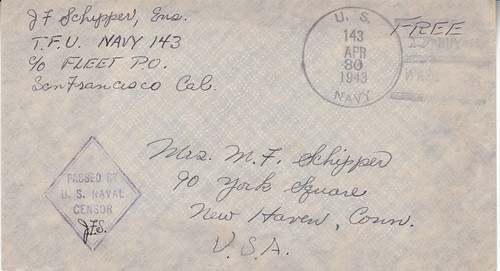 JF Schipper, Ens.
T.F.U. NAVY 143
c/o FLEET P.O.
San Francisco Cal.
U. S.
143
APR
30
1943
NAVY
FREE
Mrs. M. F. Schipper
90 York Square
New Haven, Conn.
U.S.A.
PASSED BY
U. S. NAVAL
CENSOR
J.F.S.